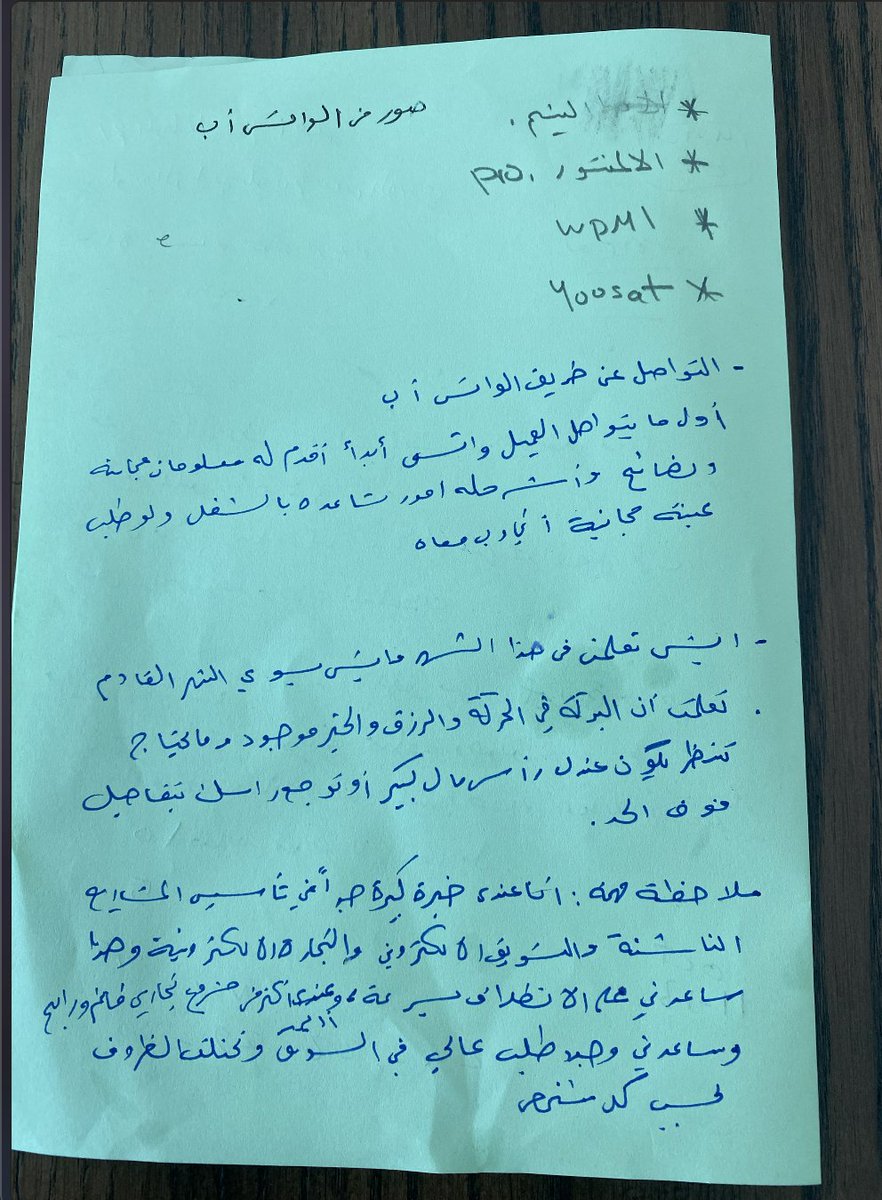 صور من الواتس أب
* الينيم.
* الالمنتور pro.
* WPML
* Yoosat
- التواصل عن طريق الواتس أب
أول ما يتواصل العميل واتس أبدأ أقدم له معلومات مجانية
ونصائح وأشرحله امور تساعده بالشغل ولو طلب
عينة مجانية أتجاوب معاه
- ايش تعلمت في هذا الشهر ما يسوي الشهر القادم
. تعلمت أن البركة في الحركة والرزق والخير موجود وما تحتاج
تنتظر يكون عندك رأس مال كبير أو توجع راسك بتفاصيل
فوق الحد.
ملاحظة مهمة: انا عندي خبرة كبيرة جداً في تأسيس المشاريع
الناشئة والتسويق الالكتروني والتجارة الالكترونية وهذا
ساعدني على الانطلاق بسرعة، وعندي أكثر من مشروع تجاري قائم ورابح
الحمد لله
وساعدني وجود طلب عالي في السوق وتختلف الظروف
بحسب كل شخص